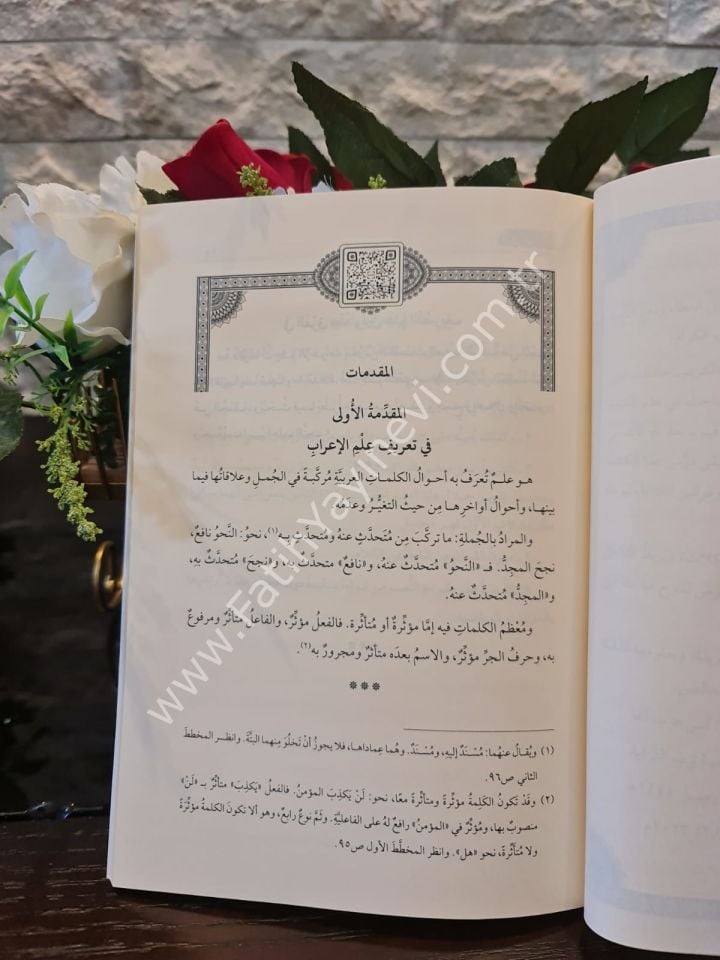 المقدمات
المقدِّمةُ الأُولى
في تعريفِ عِلْمِ الإعرابِ
هـو علـمٌ تُعرَفُ به أحـوالُ الكلمـاتِ العربيَّةِ مُركَّبـةً في الجُمـلِ وعلاقاتُها فيما
بينهـا، وأحوالُ أواخرِهـا مِن حيثُ التغيُّـرُ وعدَمُه.
والمرادُ بالجُملةِ: ما تركَّبَ مِن مُتَحدَّثٍ عنهُ ومُتحدَّثٍ بـه(١)، نحوُ: النَّحوُ نافعٌ،
نجحَ المجِدُّ. فـ «النَّحوُ» مُتحدَّثٌ عنـهُ، و«نافعٌ» متحدَّثٌ به، و«نجحَ» مُتحدَّثٌ بهِ،
و«المجِدُّ» مُتحدَّثٌ عنهُ.
ومُعْظمُ الكلماتِ فيه إمَّا مؤثِّرةٌ أو مُتأثِّرة. فالفعلُ مؤثِّرٌ، والفاعلُ متأثرٌ ومرفوعٌ
به، وحرفُ الجرِّ مؤثِّرٌ، والاسمُ بعدَه متأثرٌ ومجرورٌ به(٢).
***
(١) ويُقالُ عنهُما: مُسْنَدٌ إليهِ، ومُسْنَدٌ. وهُما عِماداها، فلا يجوزُ أنْ تَخلُوَ مِنهما البتَّةَ. وانظر المخططَ
الثاني ص٩٦.
(٢) وقَدْ تَكونُ الكَلِمةُ مؤثِّرةً ومتأثِّرةً معًا، نحو: لَنْ يَكذِبَ المؤمنُ. فالفعلُ «يَكذِبَ» متأثرٌ بـ «لَنْ»
منصوبٌ بها، ومُؤثِّرٌ في «المؤمنُ» رافعٌ لهُ على الفاعليَّةِ. وثَمَّ نوعٌ رابعٌ، وهو ألا تكونَ الكلمةُ مؤثِّرةً
ولا مُتأثِّرةً، نحو «هل». وانظر المخطَّطَ الأول ص٩٥.
www.FatihYayinevi.com.tr